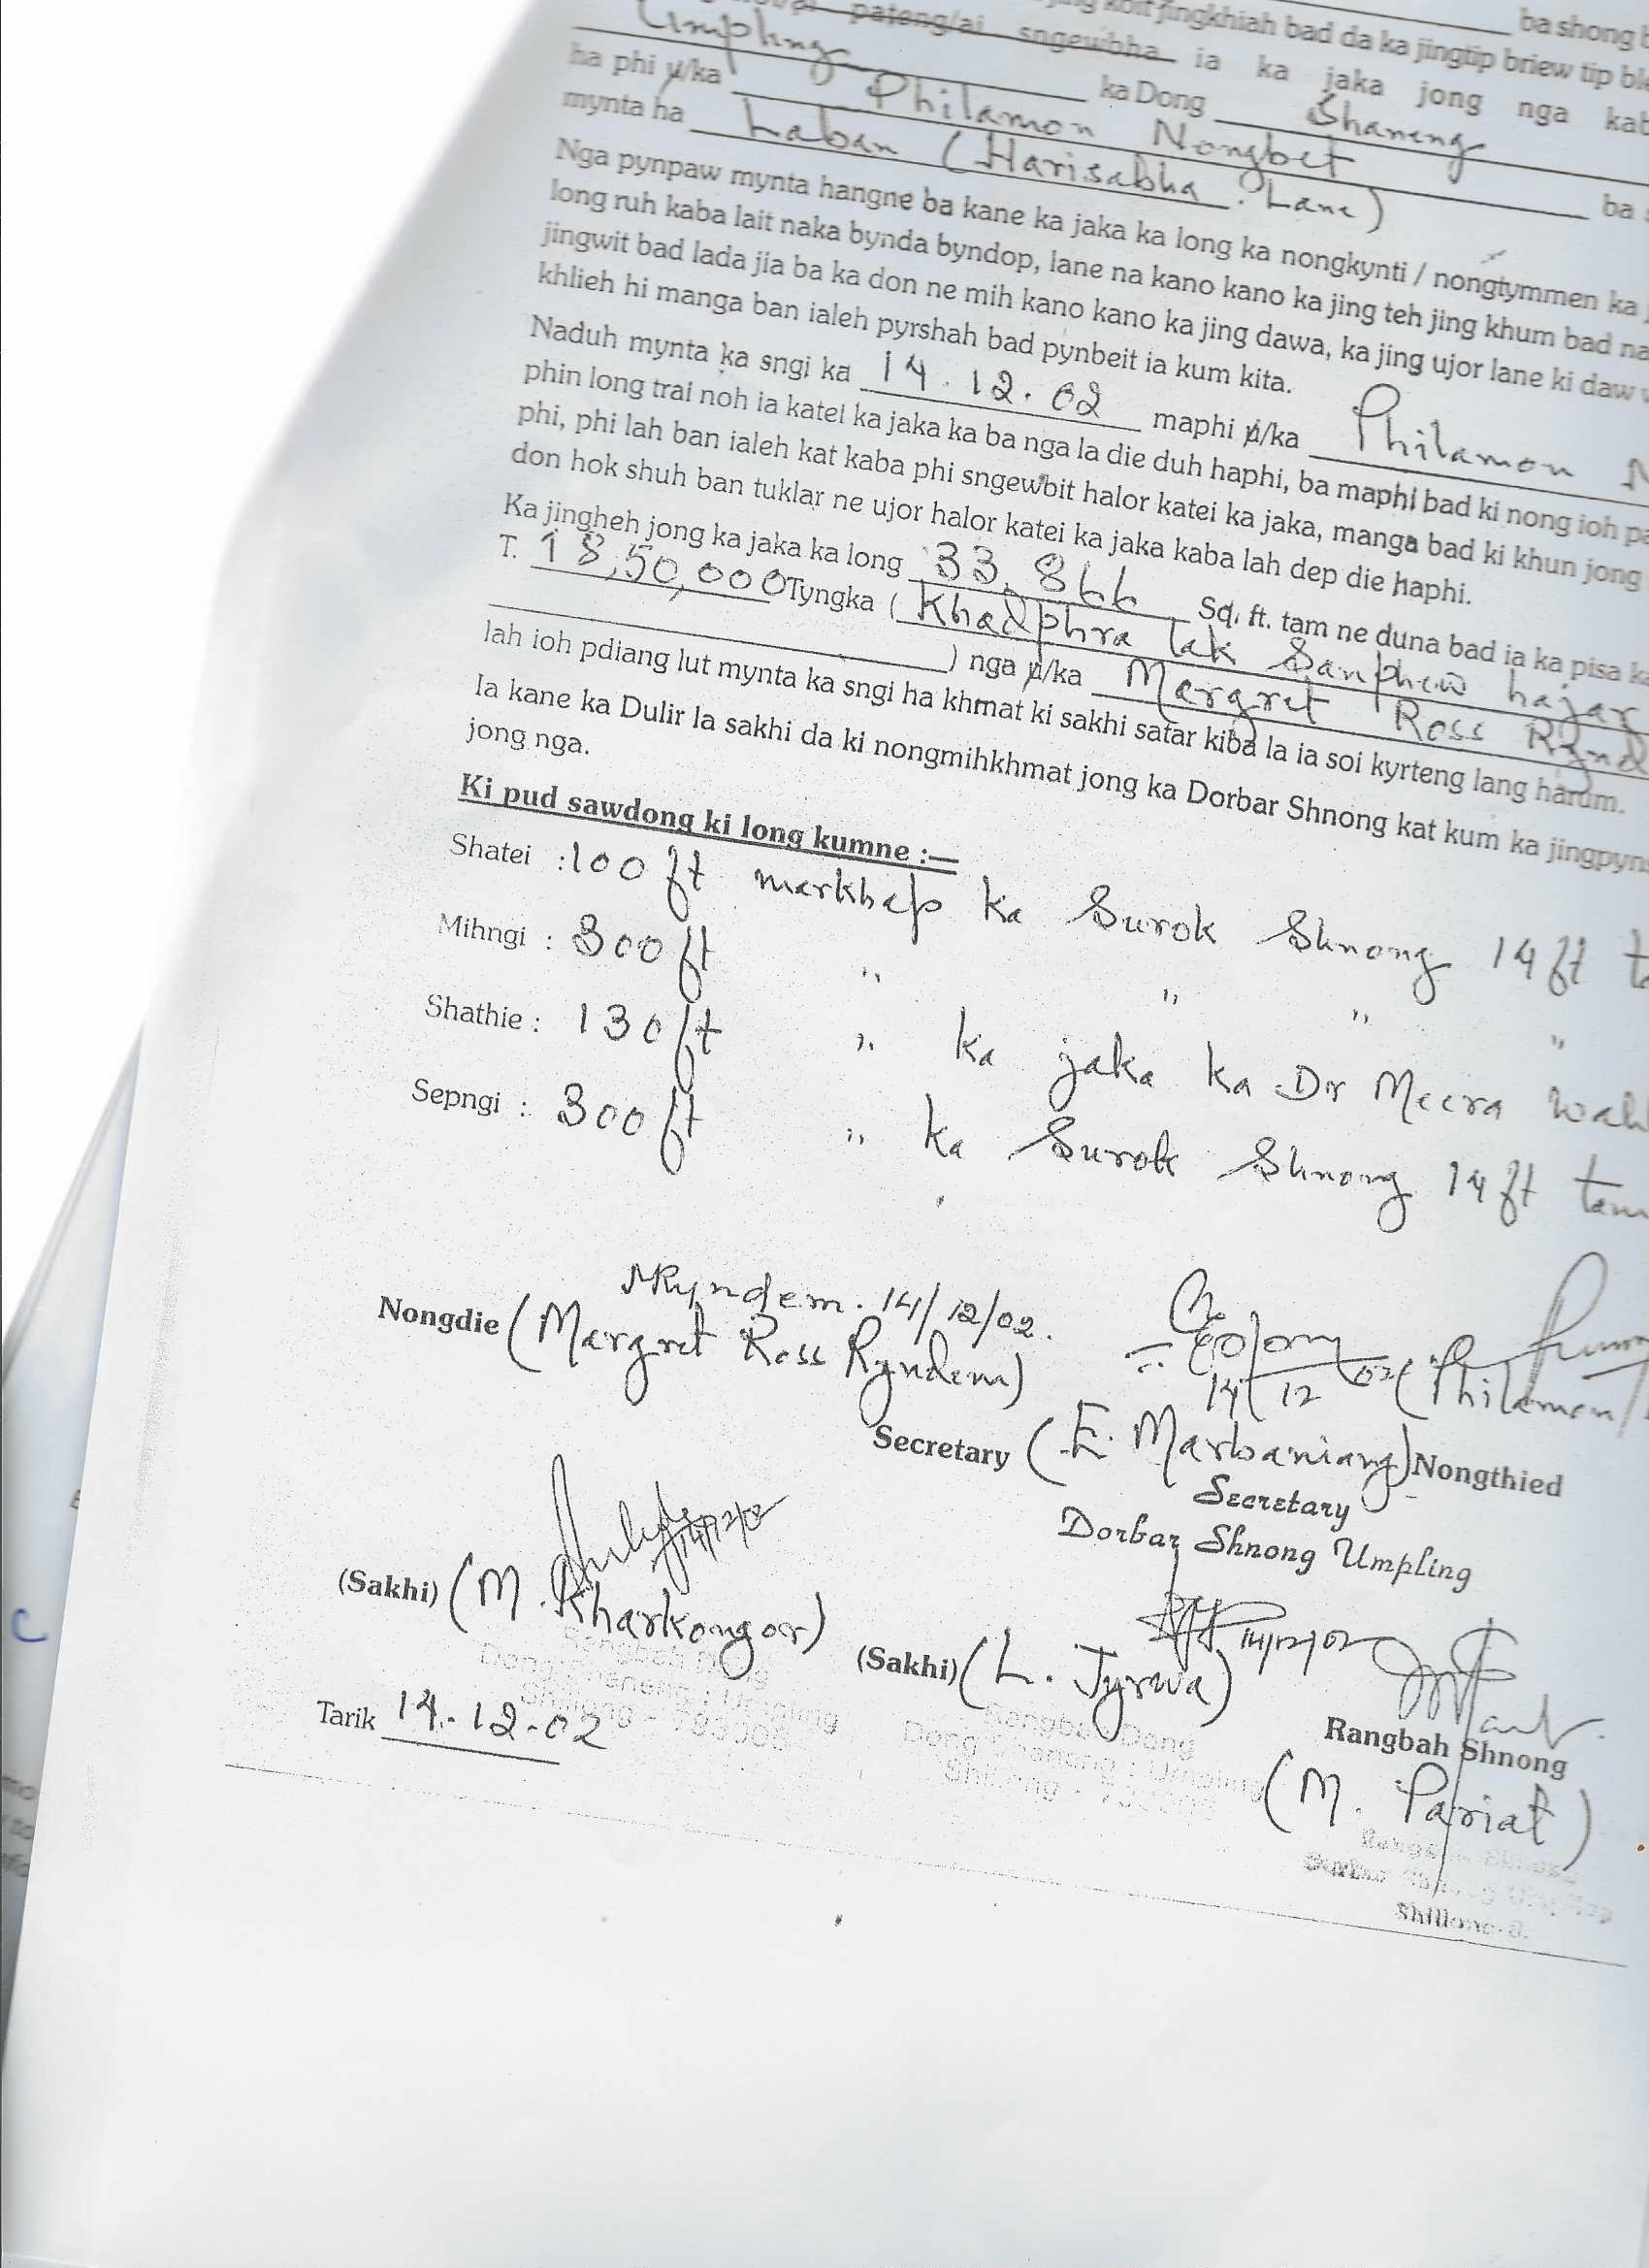 ba shong
jingkhiah bad da ka jingtip briew tip
pateng/ai sngewbha ia ka jaka jong nga
Umpling ka Dong Shaneng
ha phi u/ka Philamon Nongbet
mynta ha Laban (Harisabha. Lane) ba
Nga pynpaw mynta hangne ba kane ka jaka ka long ka nongkynti / nongtymmen ka
long ruh kaba lait naka bynda byndop, lane na kano kano ka jing teh jing khum bad na
jingwit bad lada jia ba ka don ne mih kano kano ka jing dawa, ka jing ujor lane ki daw
khlieh hi manga ban ialeh pyrshah bad pynbeit ia kum kita.
Naduh mynta ka sngi ka 14.12.02 maphi u/ka Philamon
phin long trai noh ia katei ka jaka ka ba nga la die duh haphi, ba maphi bad ki nong ioh
phi, phi lah ban ialeh kat kaba phi sngewbit halor katei ka jaka, manga bad ki khun jong
don hok shuh ban tuklar ne ujor halor katei ka jaka kaba lah dep die haphi.
Ka jingheh jong ka jaka ka long 33,866 Sq. ft. tam ne duna bad ia ka pisa
T. 18,50,000 Tyngka (Khadphra lak Sanphew hajar
) nga u/ka Margret Ross
lah ioh pdiang lut mynta ka sngi ha khmat ki sakhi satar kiba la ia soi kyrteng lang harum.
Ia kane ka Dulir la sakhi da ki nongmihkhmat jong ka Dorbar Shnong kat kum ka
jong nga.
Ki pud sawdong ki long kumne :—
Shatei : 100 ft markhap ka Surok Shnong 14 ft
Mihngi : 300 ft " " " "
Shathie : 130 ft " ka jaka ka Dr Meera
Sepngi : 300 ft " ka Surok Shnong 14 ft tam
MRyndem. 14/12/02.
Nongdie (Margret Ross Ryndem)
14/12/02 (Philamon
Secretary (E. Marbaniang) Nongthied
Secretary
Dorbar Shnong Umpling
14/12/02
(Sakhi) (M. Kharkongor)
14/12/02
(Sakhi) (L. Jyrwa)
Rangbah Dong
Dong Shaneng : Umpling
Shillong - 793006
Rangbah Dong
Dong Shaneng : Umpling
Shillong - 793006
Tarik 14-12-02
Rangbah Shnong
(M. Pariat)
Shillong-6.